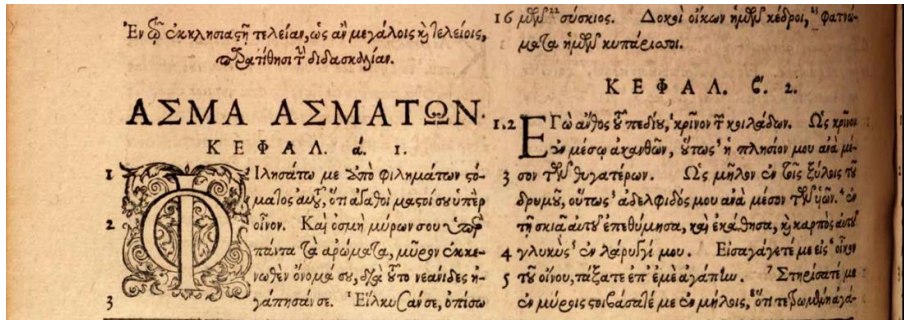 Ἐν ᾧ ἐκκλησιαστῇ τελείαν, ὡς ἂν μεγάλοις καὶ τελείοις,
παρατίθησι τὴν διδασκαλίαν.
ΑΣΜΑ ΑΣΜΑΤΩΝ.
ΚΕΦΑΛ. ά. 1.
1 ΦΙλησάτω με ἀπὸ φιλημάτων στό-
ματος αὐτοῦ, ὅτι ἀγαθοὶ μαστοί σου ὑπὲρ
2 οἶνον. Καὶ ὀσμὴ μύρων σου ὑπὲρ
πάντα τὰ ἀρώματα, μῦρον ἐκκε-
νωθὲν ὄνομά σου, διὰ τοῦτο νεάνιδες ἠ-
3 γάπησάν σε. Εἵλκυσάν σε, ὀπίσω
16 ἡμῶν σύσκιος. Δοκοὶ οἴκων ἡμῶν κέδροι, φατνώ-
ματα ἡμῶν κυπάρισσοι.
ΚΕΦΑΛ. ϛ. 2.
1.2 ΕΓὼ ἄνθος τοῦ πεδίου, κρίνον τῶν κοιλάδων. Ὡς κρίνον
ἐν μέσῳ ἀκανθῶν, οὕτως ἡ πλησίον μου ἀνὰ μέ-
3 σον τῶν θυγατέρων. Ὡς μῆλον ἐν τοῖς ξύλοις τοῦ
δρυμοῦ, οὕτως ἀδελφιδός μου ἀνὰ μέσον τῶν υἱῶν. ἐν
τῇ σκιᾷ αὐτοῦ ἐπεθύμησα, καὶ ἐκάθησα, καὶ καρπὸς αὐτοῦ
4 γλυκὺς ἐν λάρυγγί μου. Εἰσαγάγετέ με εἰς οἶκον
5 τοῦ οἴνου, τάξατε ἐπ' ἐμὲ ἀγάπην. Στηρίσατέ με
ἐν μύροις, στοιβάσατέ με ἐν μήλοις, ὅτι τετρωμένη ἀγά-